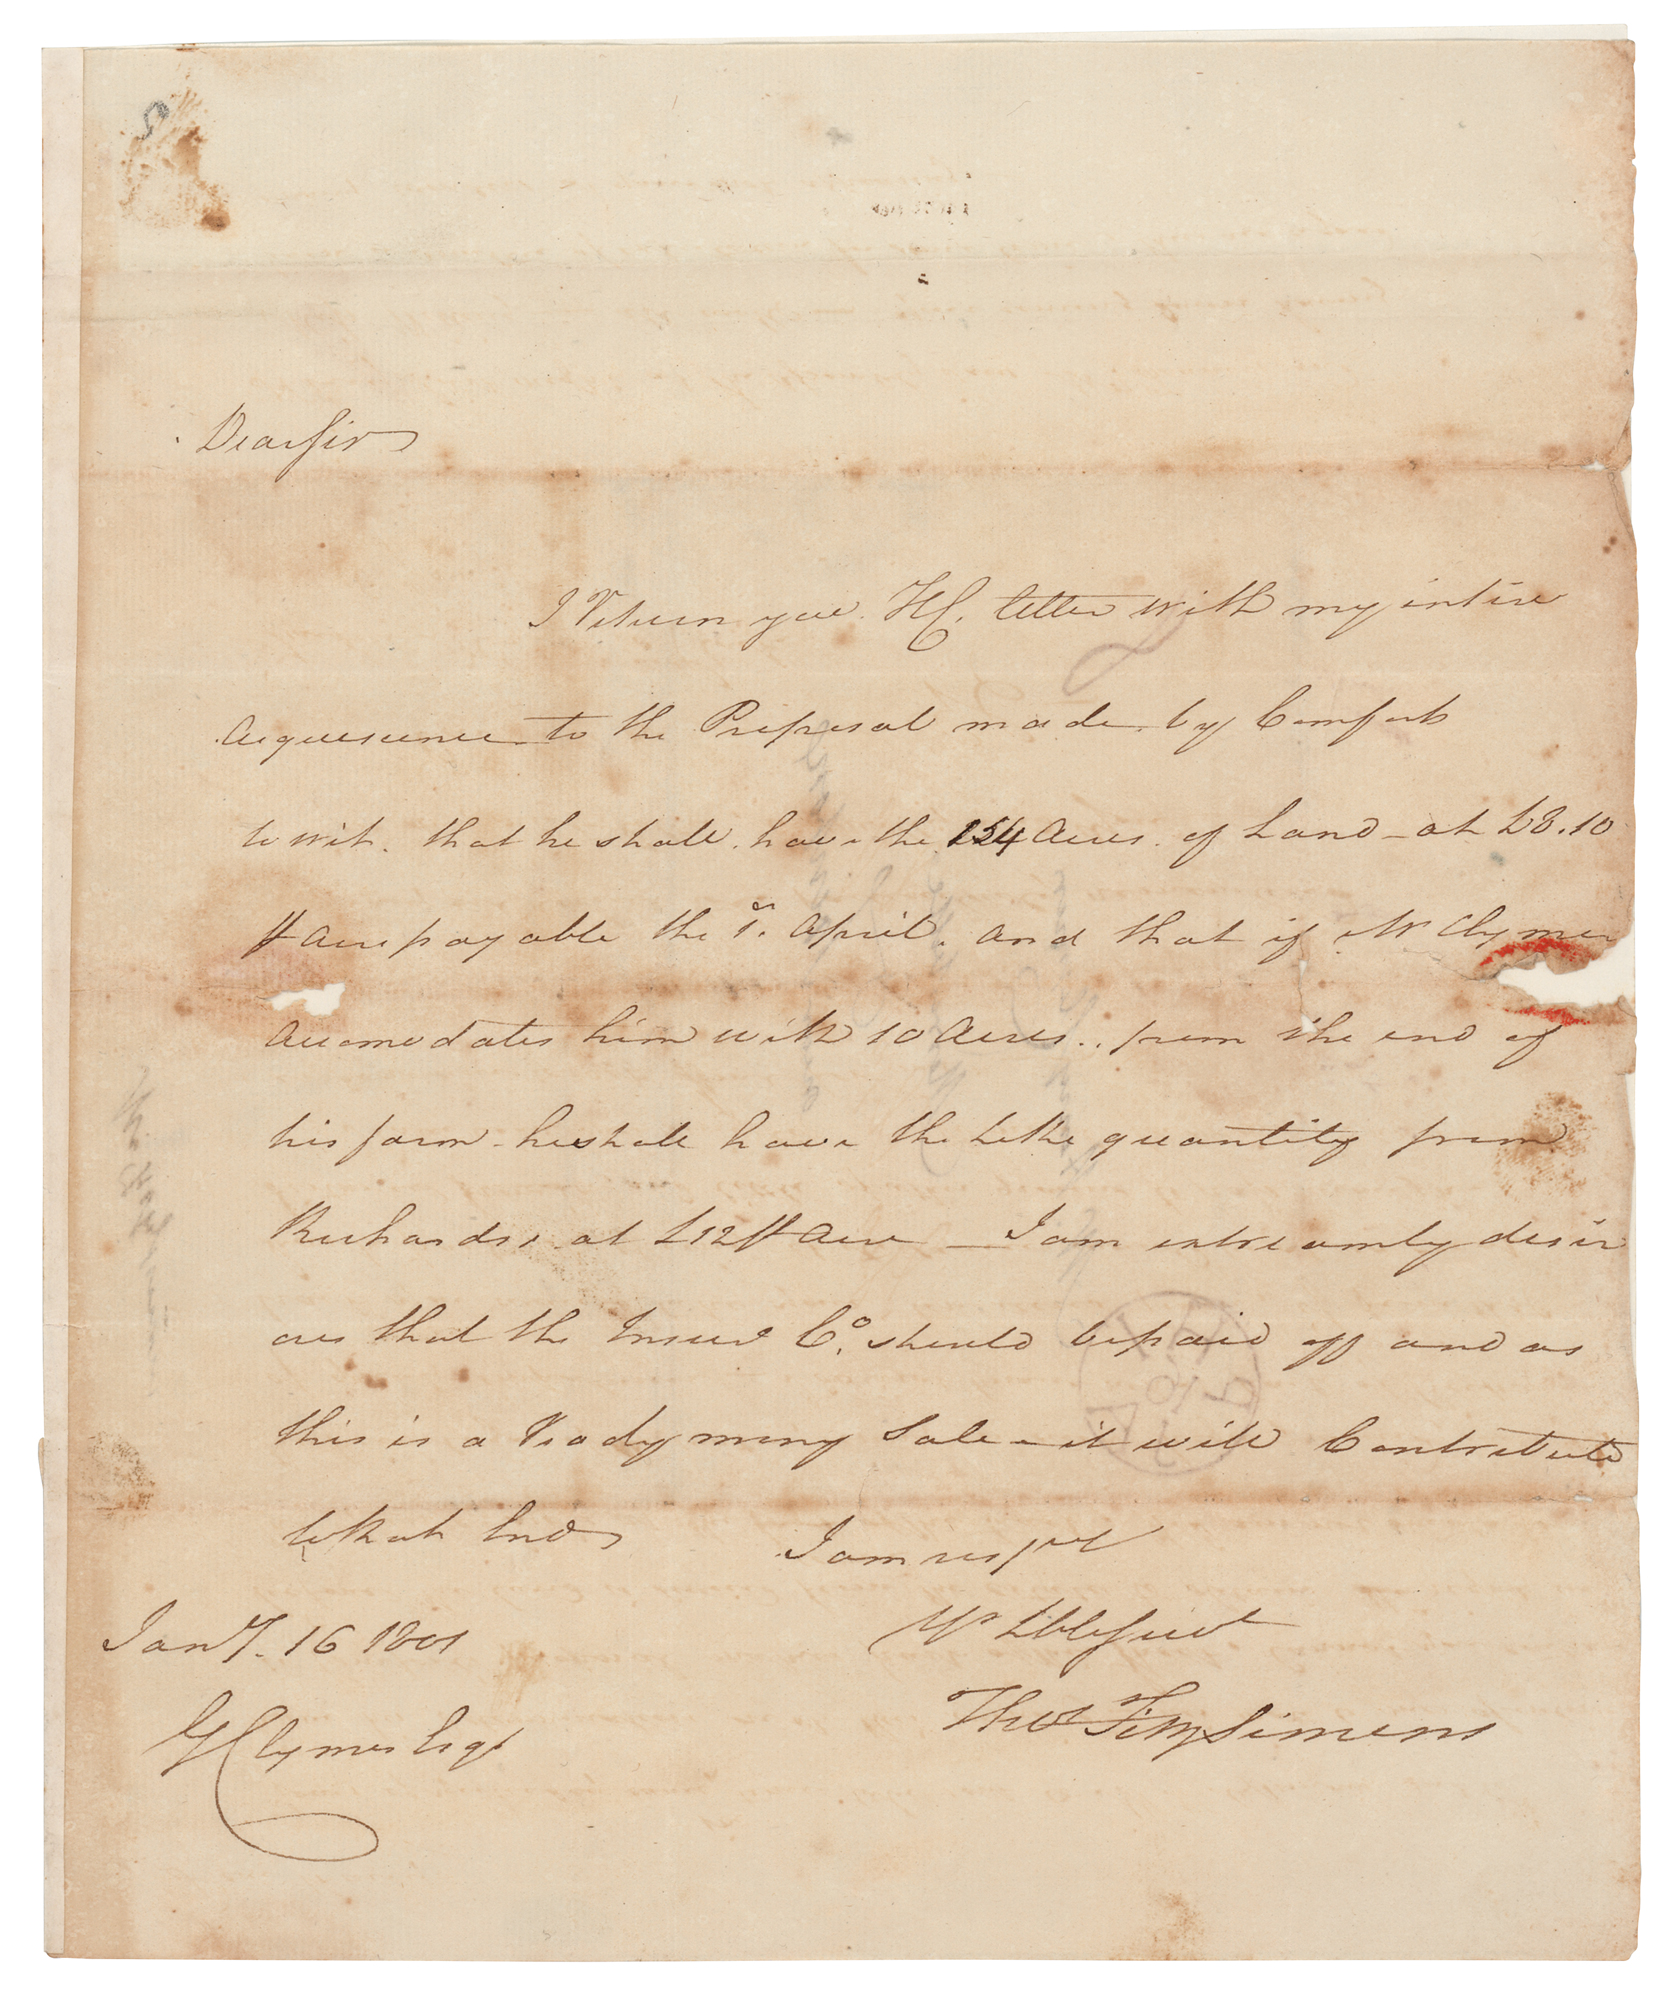 Dear Sir
I Return you HC. letter with my intire
acquiescence to the Proposal made by Comfort
to wit. that he shall have the 154 Acres of Land - at £8.10
⅌ Acre payable the 1st. April. and that if Mr Clymer
Accomodates him with 10 Acres.. from the end of
his farm - he shall have the like quantity from
Richards. at £12 ⅌ Acre - I am extreamly desir
ous that the Insure Co. should be paid off and as
this is a Ready mony Sale - it will Contribute
to that End
I am respy
Yr Obl Servt
Jany. 16 1801
Thos FitzSimons
G Clymer Esqr